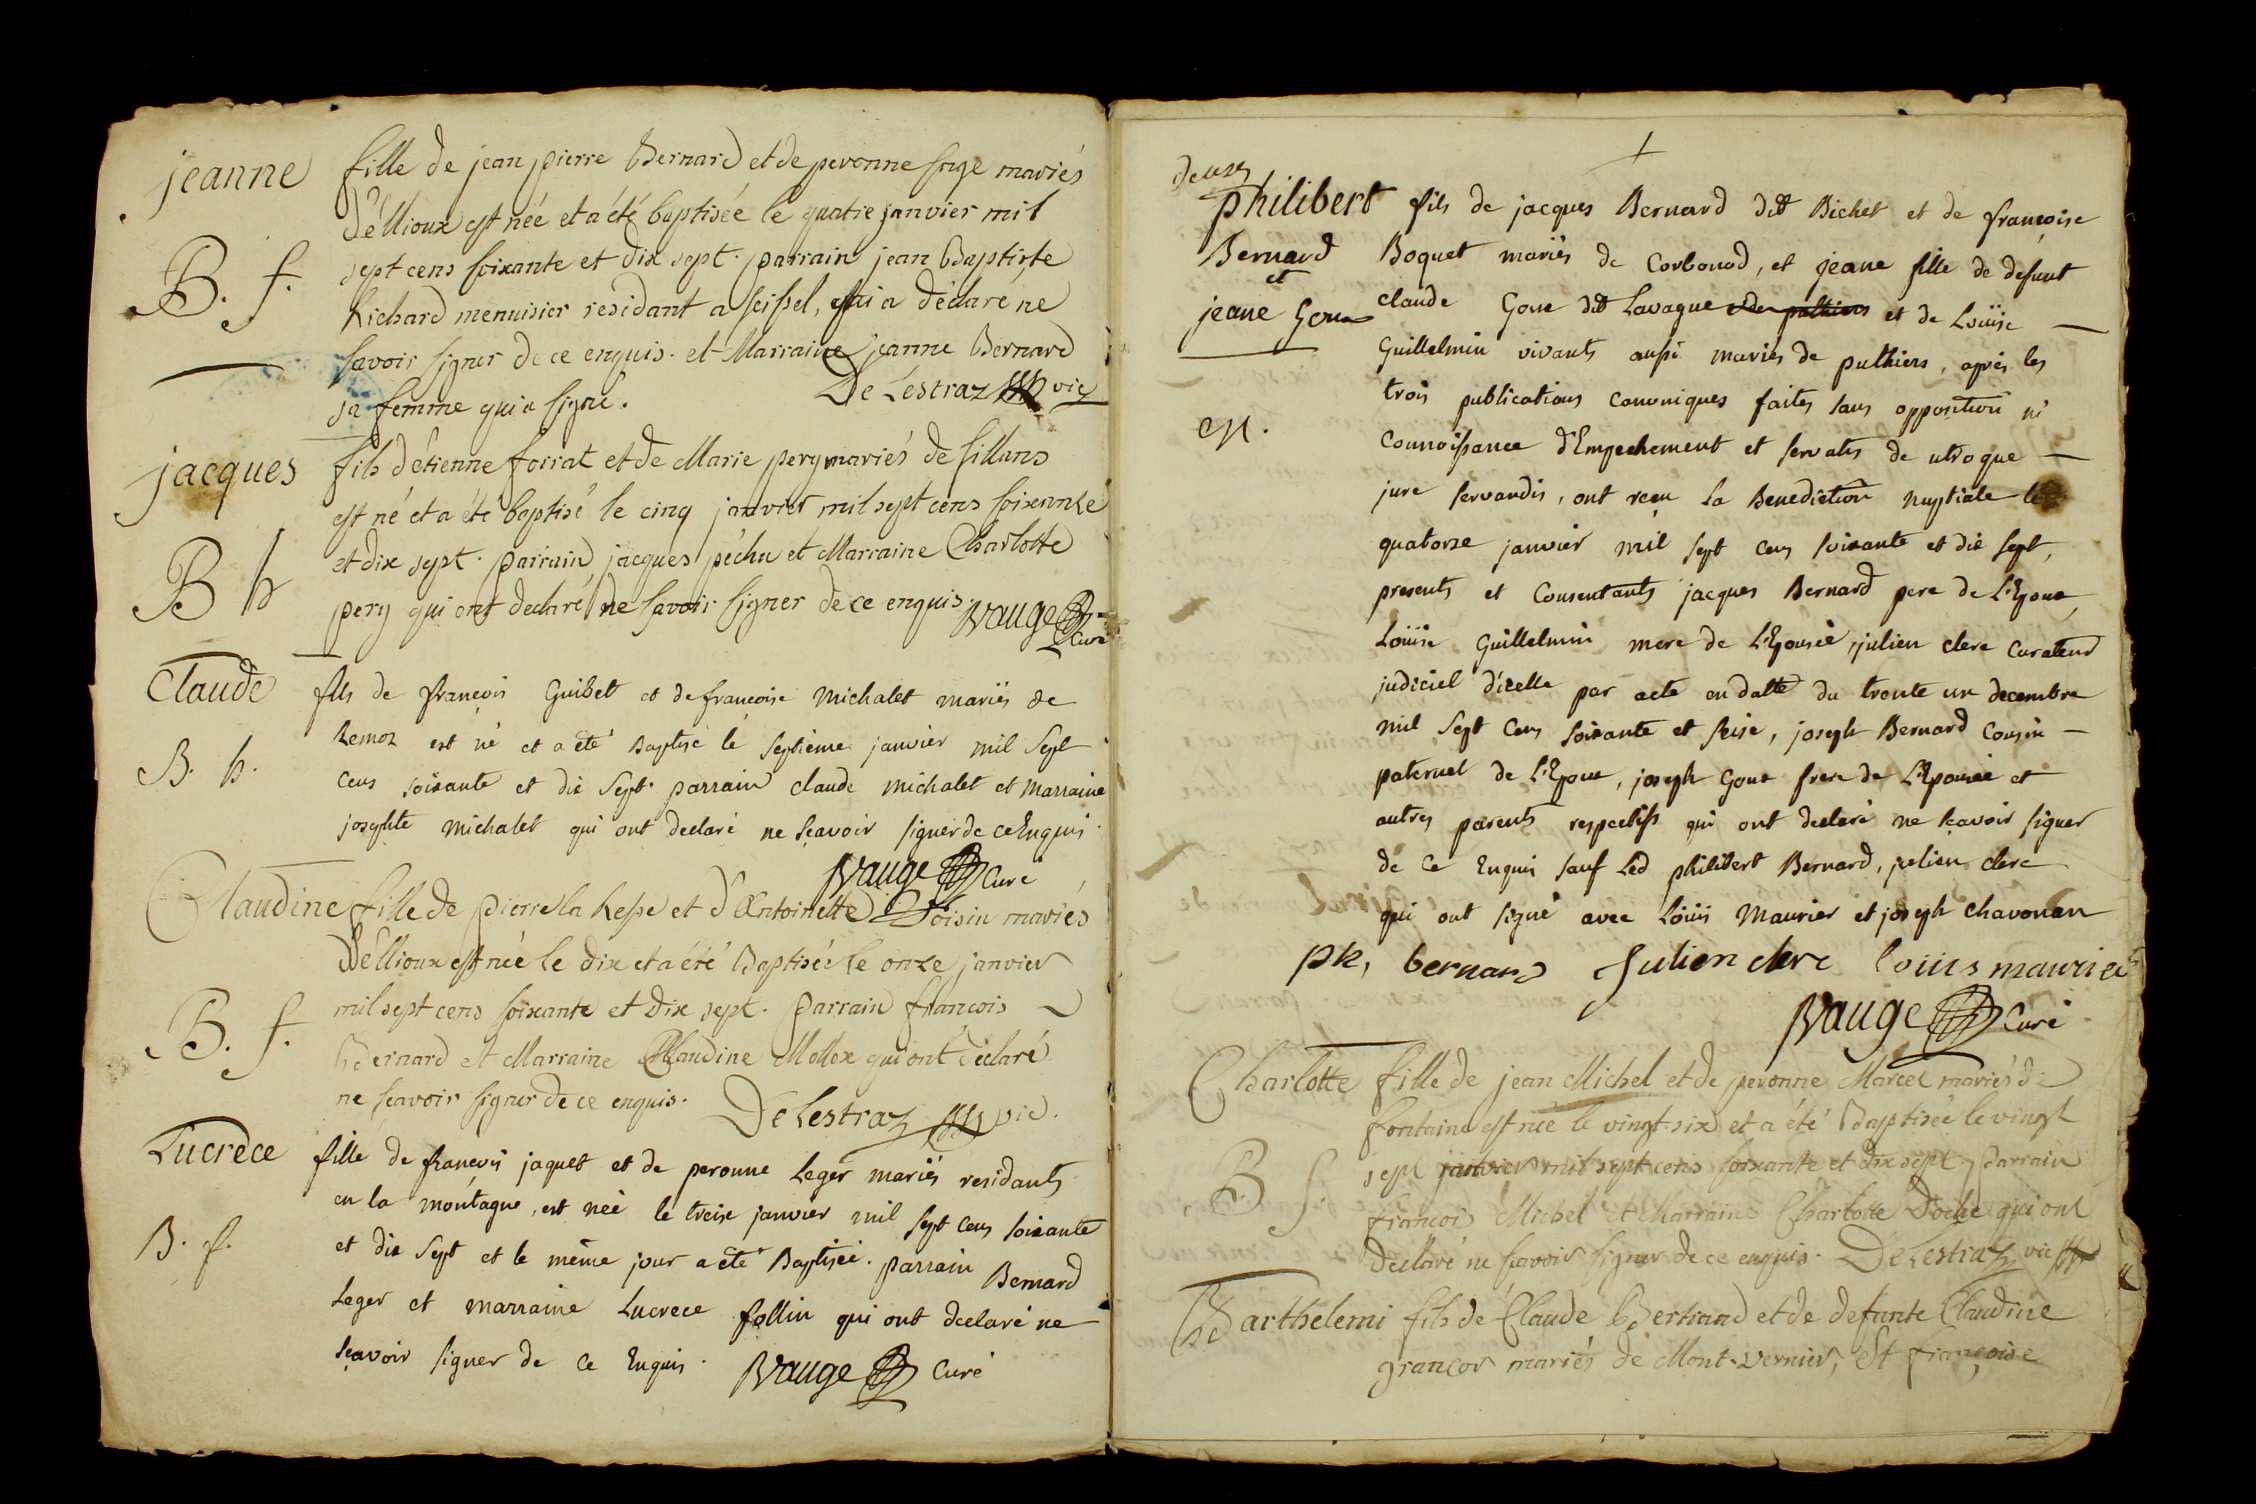 jeanne fille de jean pierre Bernard et de peronne sage mariés
d'éllioux est née et a été baptisée le quatre janvier mil
B. f. sept cens soixante et dix sept. parrain jean Baptiste
Richard menuisier residant a seissel, qui a déclaré ne
savoir signer de ce enquis. et Marraine jeanne Bernard
sa femme qui a signé. De Lestraz vic
jacques fils d'étienne forrat et de Marie pery mariés de sillans
est né et a été baptisé le cinq janvier mil sept cens soixante
et dix sept. parrain jacques péchu et Marraine Charlotte
B h pery qui ont declaré ne savoir signer de ce enquis. Vauge
Curé
Claude fils de françois Guibet et de francoise Michalet mariés de
Remoz est né et a été Baptisé le septième janvier mil sept
B. h. cens soixante et dix sept. parrain claude michalet et marraine
josephte michalet qui ont declaré ne sçavoir signer de ce Enquis.
Vauge Curé
Claudine fille de pierre la Resse et d'Antoinette Loisin mariés
d'éllioux est née le dix et a été Baptisée le onze janvier
mil sept cens soixante et dix sept. parrain francois
B. f. Bernard et Marraine Claudine Molléx qui ont déclaré
ne sçavoir signer de ce enquis. De Lestraz vic.
Lucrece fille de françois jaquet et de peronne Leger mariés residants
en la montagne, est née le treize janvier mil sept cens soixante
B. f. et dix sept et le même jour a été Baptisée. parrain Bernard
Leger et marraine Lucrece follin qui ont declaré ne
sçavoir signer de ce Enquis. Vauge Curé
deux
philibert fils de jacques Bernard dit Bichet et de françoise
Bernard Boquet mariés de Corbonod, et jeane fille de defunt
et
jeane Goux claude Goux dit Lavaque et de Loüise
Guillelmin vivants aussi mariés de puthiers, après les
trois publications canoniques faites sans opposition ni
M. connoissance d'Empechement et servatis de utroque
jure servandis, ont reçu la Benediction nuptiale le
quatorze janvier mil sept cens soixante et dix sept,
presents et Consentants jacques Bernard pere de L'Epoux,
Loüise Guillelmin mere de L'Epousée, julien clerc Curateur
judiciel d'icelle par acte en datte du trente un decembre
mil sept cens soixante et seize, joseph Bernard Cousin
paternel de L'Epoux, joseph Goux frere de L'Epousée et
autres parents respectifs qui ont declaré ne sçavoir signer
de ce Enquis sauf Led philibert Bernard, julien clerc
qui ont signé avec Loüis Maurier et joseph Chavonan
ph, bernard Julien clerc louiis maurier
Vauge Curé
Charlotte fille de jean Michel et de peronne Marcel mariés de
fontaine est née le vingt six et a été Baptisée le vingt
sept janvier mil sept cens soixante et dix sept. parrain
B. f. francois Michel et Marraine Charlotte Doche qui ont
declaré ne sçavoir signer de ce enquis. De Lestraz vic
Barthelemi fils de Claude Bertrand et de defunte Claudine
grancor mariés de Mont-vernier, et françoise